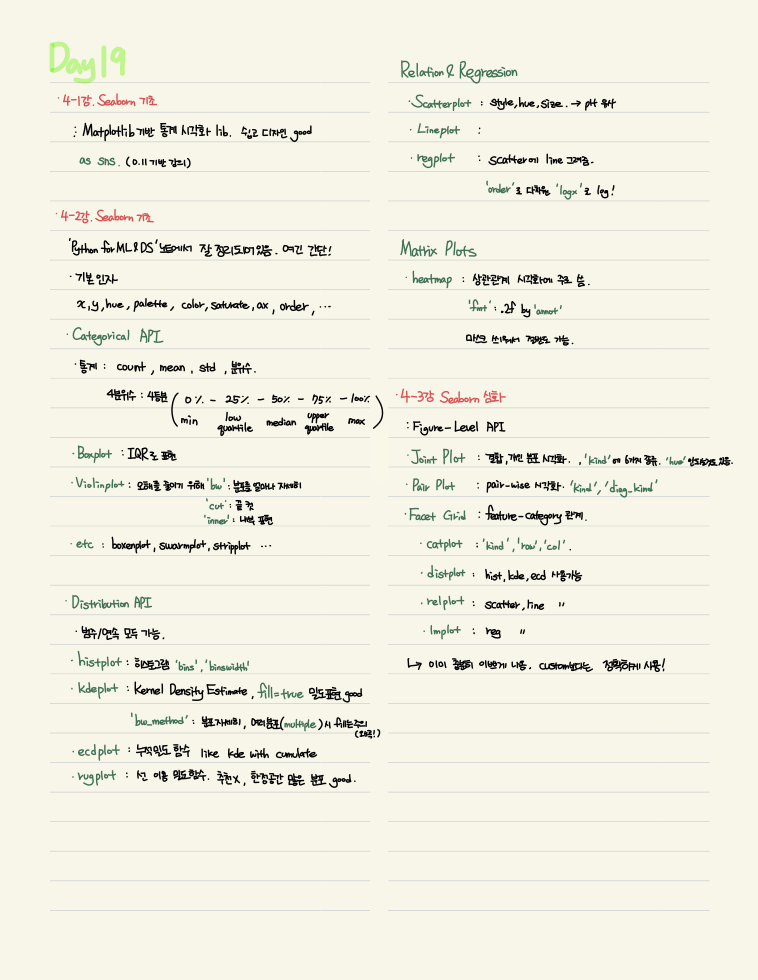 Day 19
· 4-1강. Seaborn 기초
: Matplotlib 기반 통계 시각화 lib. 쉽고 디자인 good
as sns. (0.11 기반 강의)
· 4-2강. Seaborn 기초
'Python for ML & DS' 노트에서 잘 정리되어 있음. 여긴 간단!
· 기본 인자
x, y, hue, palette, color, saturate, ax, order, ···
· Categorical API
· 통계 : count, mean, std, 분위수.
4분위수 : 4등분 ( 0% - 25% - 50% - 75% - 100% )
min low quartile median upper quartile max
· Boxplot : IQR로 표현
· Violinplot : 오해를 줄이기 위해 'bw' : 분포를 얼마나 자세히
'cut' : 끝 컷
'inner' : 내부 표현
· etc : boxenplot, swarmplot, stripplot ···
· Distribution API
· 범주/연속 모두 가능.
· histplot : 히스토그램 'bins', 'binswidth'
· kdeplot : Kernel Density Estimate, fill=true 밀도표현 good
'bw_method' : 분포 자세히, 여러분포(multiple)시 fill는 주의
· ecdplot : 누적밀도 함수 like kde with cumulate
· rugplot : 선 이용 밀도함수. 추천X, 한정공간 많은 분포 good.
Relation & Regression
· Scatterplot : style, hue, size. →
· Lineplot :
· regplot : scatter에 line 그려줌.
'order'로 다차원 'logx'로 log!
Matrix Plots
· heatmap : 상관관계 시각화에 주로 씀.
'fmt' : .2f by 'annot'
마스크 씌워서 절반도 가능.
· 4-3강 Seaborn 심화
: Figure-Level API
· Joint Plot : 결합, 개인 분포 시각화. , 'kind'에 6가지 종류. 'hue'
· Pair Plot : pair-wise 시각화. 'kind', 'diag_kind'
· Facet Grid : feature-category 관계.
· catplot : 'kind', 'row', 'col'.
· distplot : hist, kde, ecd 사용가능
· relplot : scatter, line "
· lmplot : reg "
↳ 이쁘게 나옴. custom보다는 정확하게 사용!